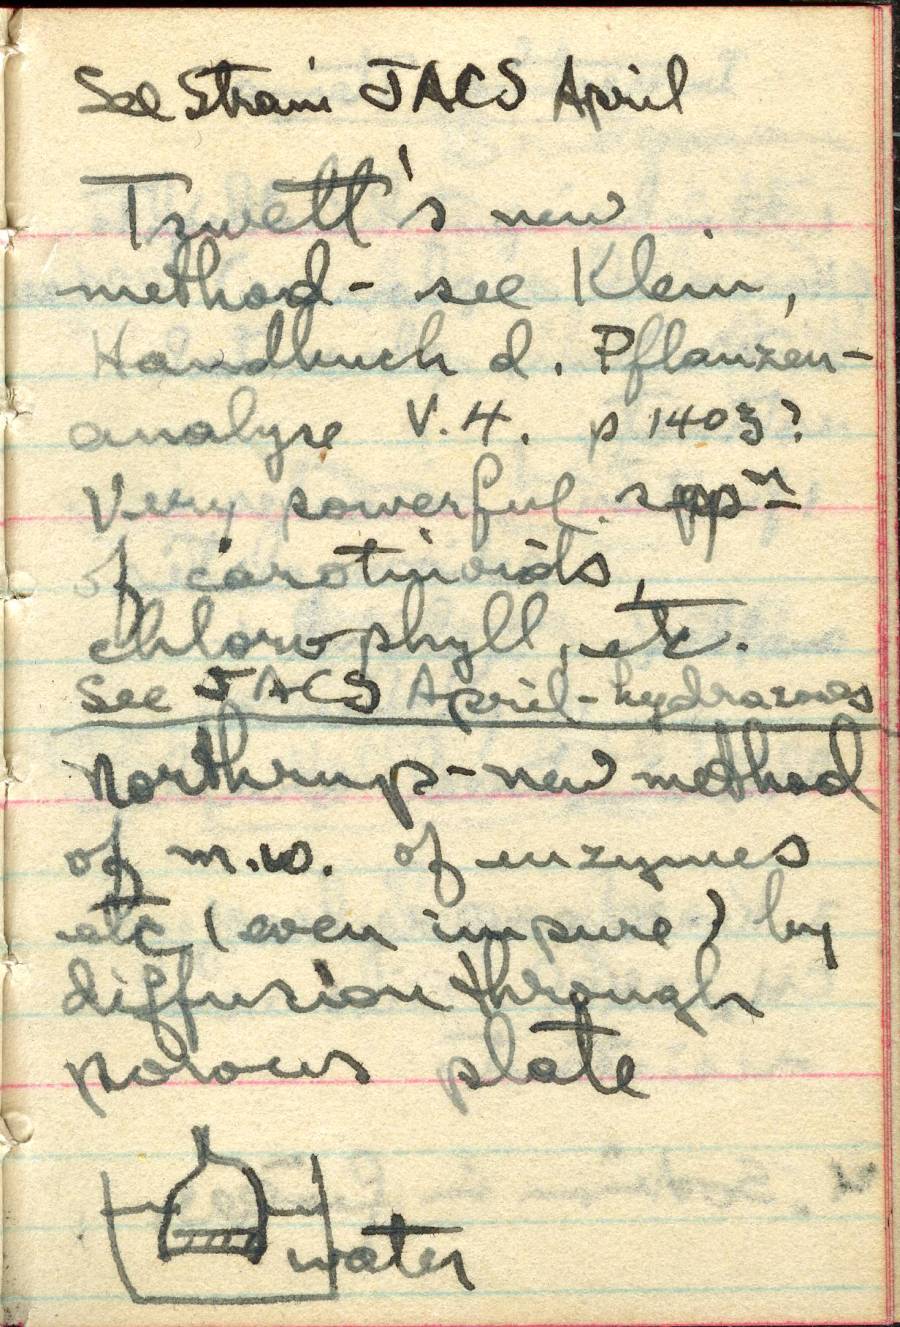 See Strain JACS April
Tswett's new
method - see Klein,
Handbuch d. Pflanzen-
analyse V.4. p 1403?
Very powerful. sppn
of carotinoids,
chlorophyll, etc.
See JACS April - hydrazones
Northrup - new method
of m.w. of enzymes
etc (even impure) by
diffusion through
porous plate
water